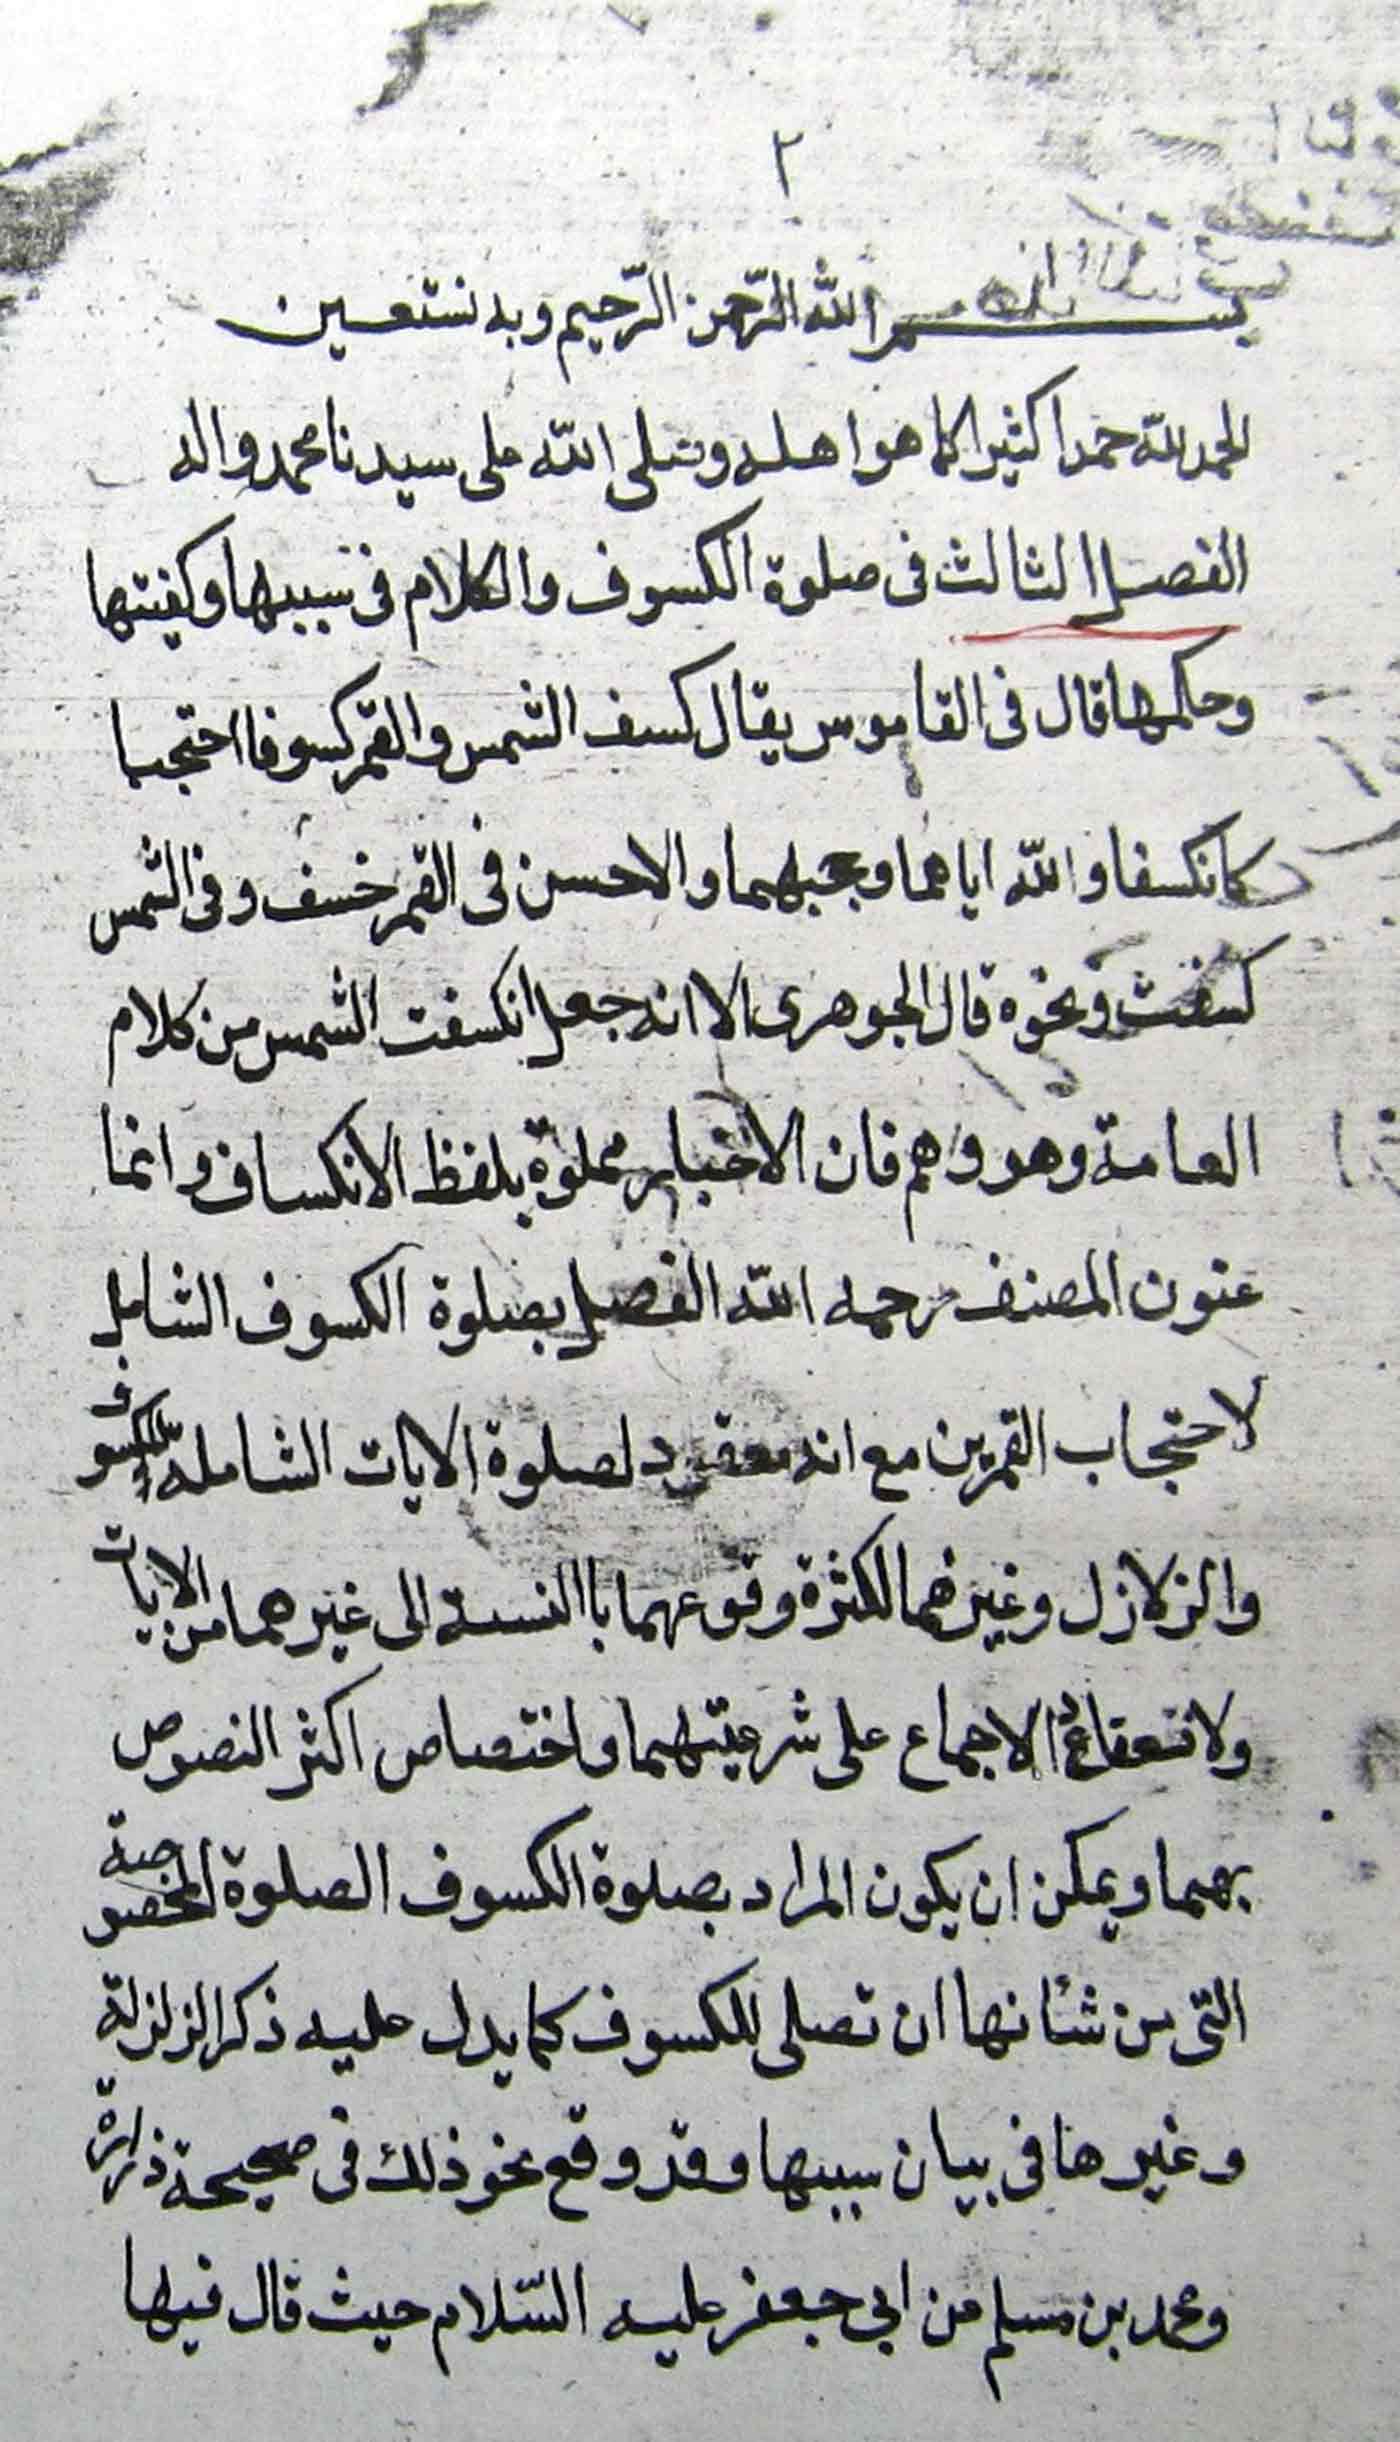 ٢
بسم الله الرّحمن الرّحيم وبه نستعين
الحمد لله حمدا كثيرا كما هو اهله وصلى الله على سيدنا محمد واله
الفصل الثالث فى صلوة الكسوف والكلام فى سببها وكيفيتها
وحكمها قال فى القاموس يقال كسف الشمس والقمر كسوفا احتجبا
كانكسفا والله اياهما وحجبهما والاحسن فى القمر خسف وفى الشمس
كسفت ونحوه قال الجوهرى الا انه جعل انكسفت الشمس من كلام
العامة وهو وهم فان الاخبار مملوة بلفظ الانكساف وانما
عنون المصنف رحمه الله الفصل بصلوة الكسوف الشامل
لاحتجاب القمرين مع انه معقود لصلوة الايات الشاملة للكسوف
والزلازل وغيرهما لكثرة وقوعهما باالنسبة الى غيرهما من الايات
ولانعقاد الاجماع على شرعيتهما واختصاص اكثر النصوص
بهما ويمكن ان يكون المراد بصلوة الكسوف الصلوة المخصوصة
التى من شئانها ان تصلى للكسوف كما يدل عليه ذكر الزلزلة
وغيرها فى بيان سببها وقد وقع نحو ذلك فى صحيحة زرارة
ومحمد بن مسلم عن ابى جعفر عليه السّلام حيث قال فيها